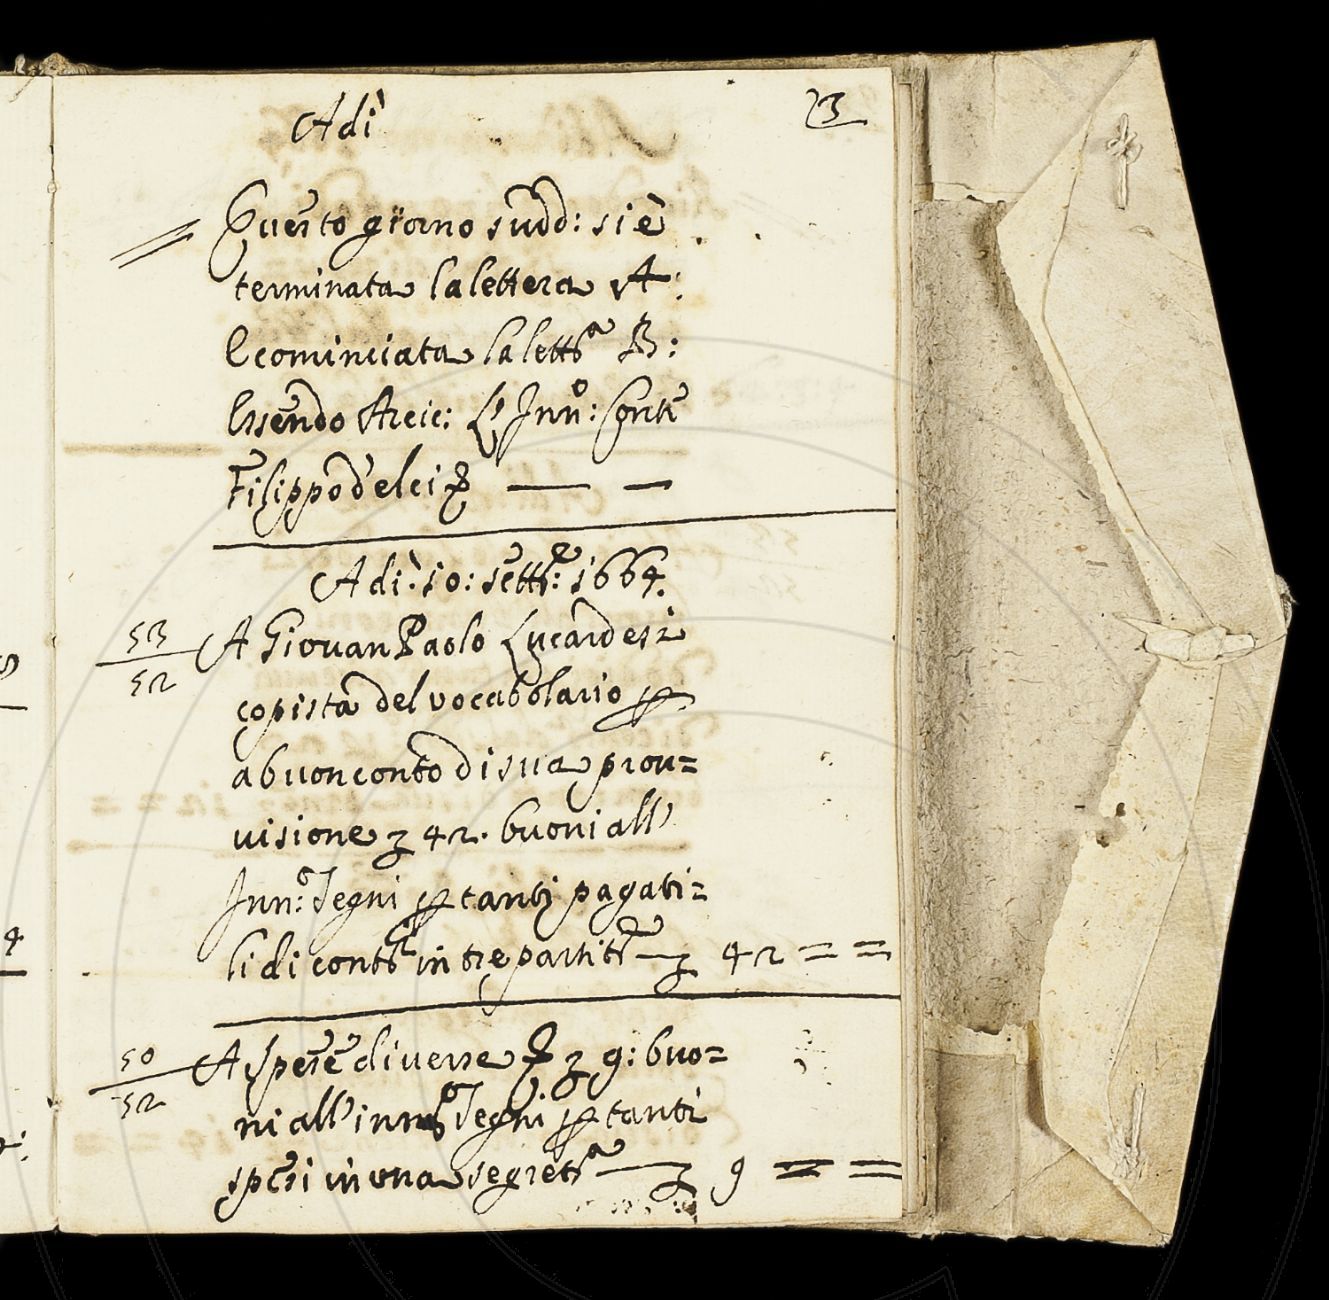 23
Adì
Questo giorno sudd: si è
terminata la lettera A:
E cominciata la lettª B:
Essendo Arcic: L'Innº: Conte
Filippo d'elci
Adì: 10: settre: 1664.
53
52
A Giovan Paolo Lucardesi
copista del vocabolario p
a buon conto di sua prou=
uisione z 42. buoni all'
Innº: Segni p tanti pagati=
li di contti in tre partite z 42 = =
50
52
A spese diverse z 9: buo=
ni all'innº Segni p tanti
spesi in una segretª z 9 = =
4